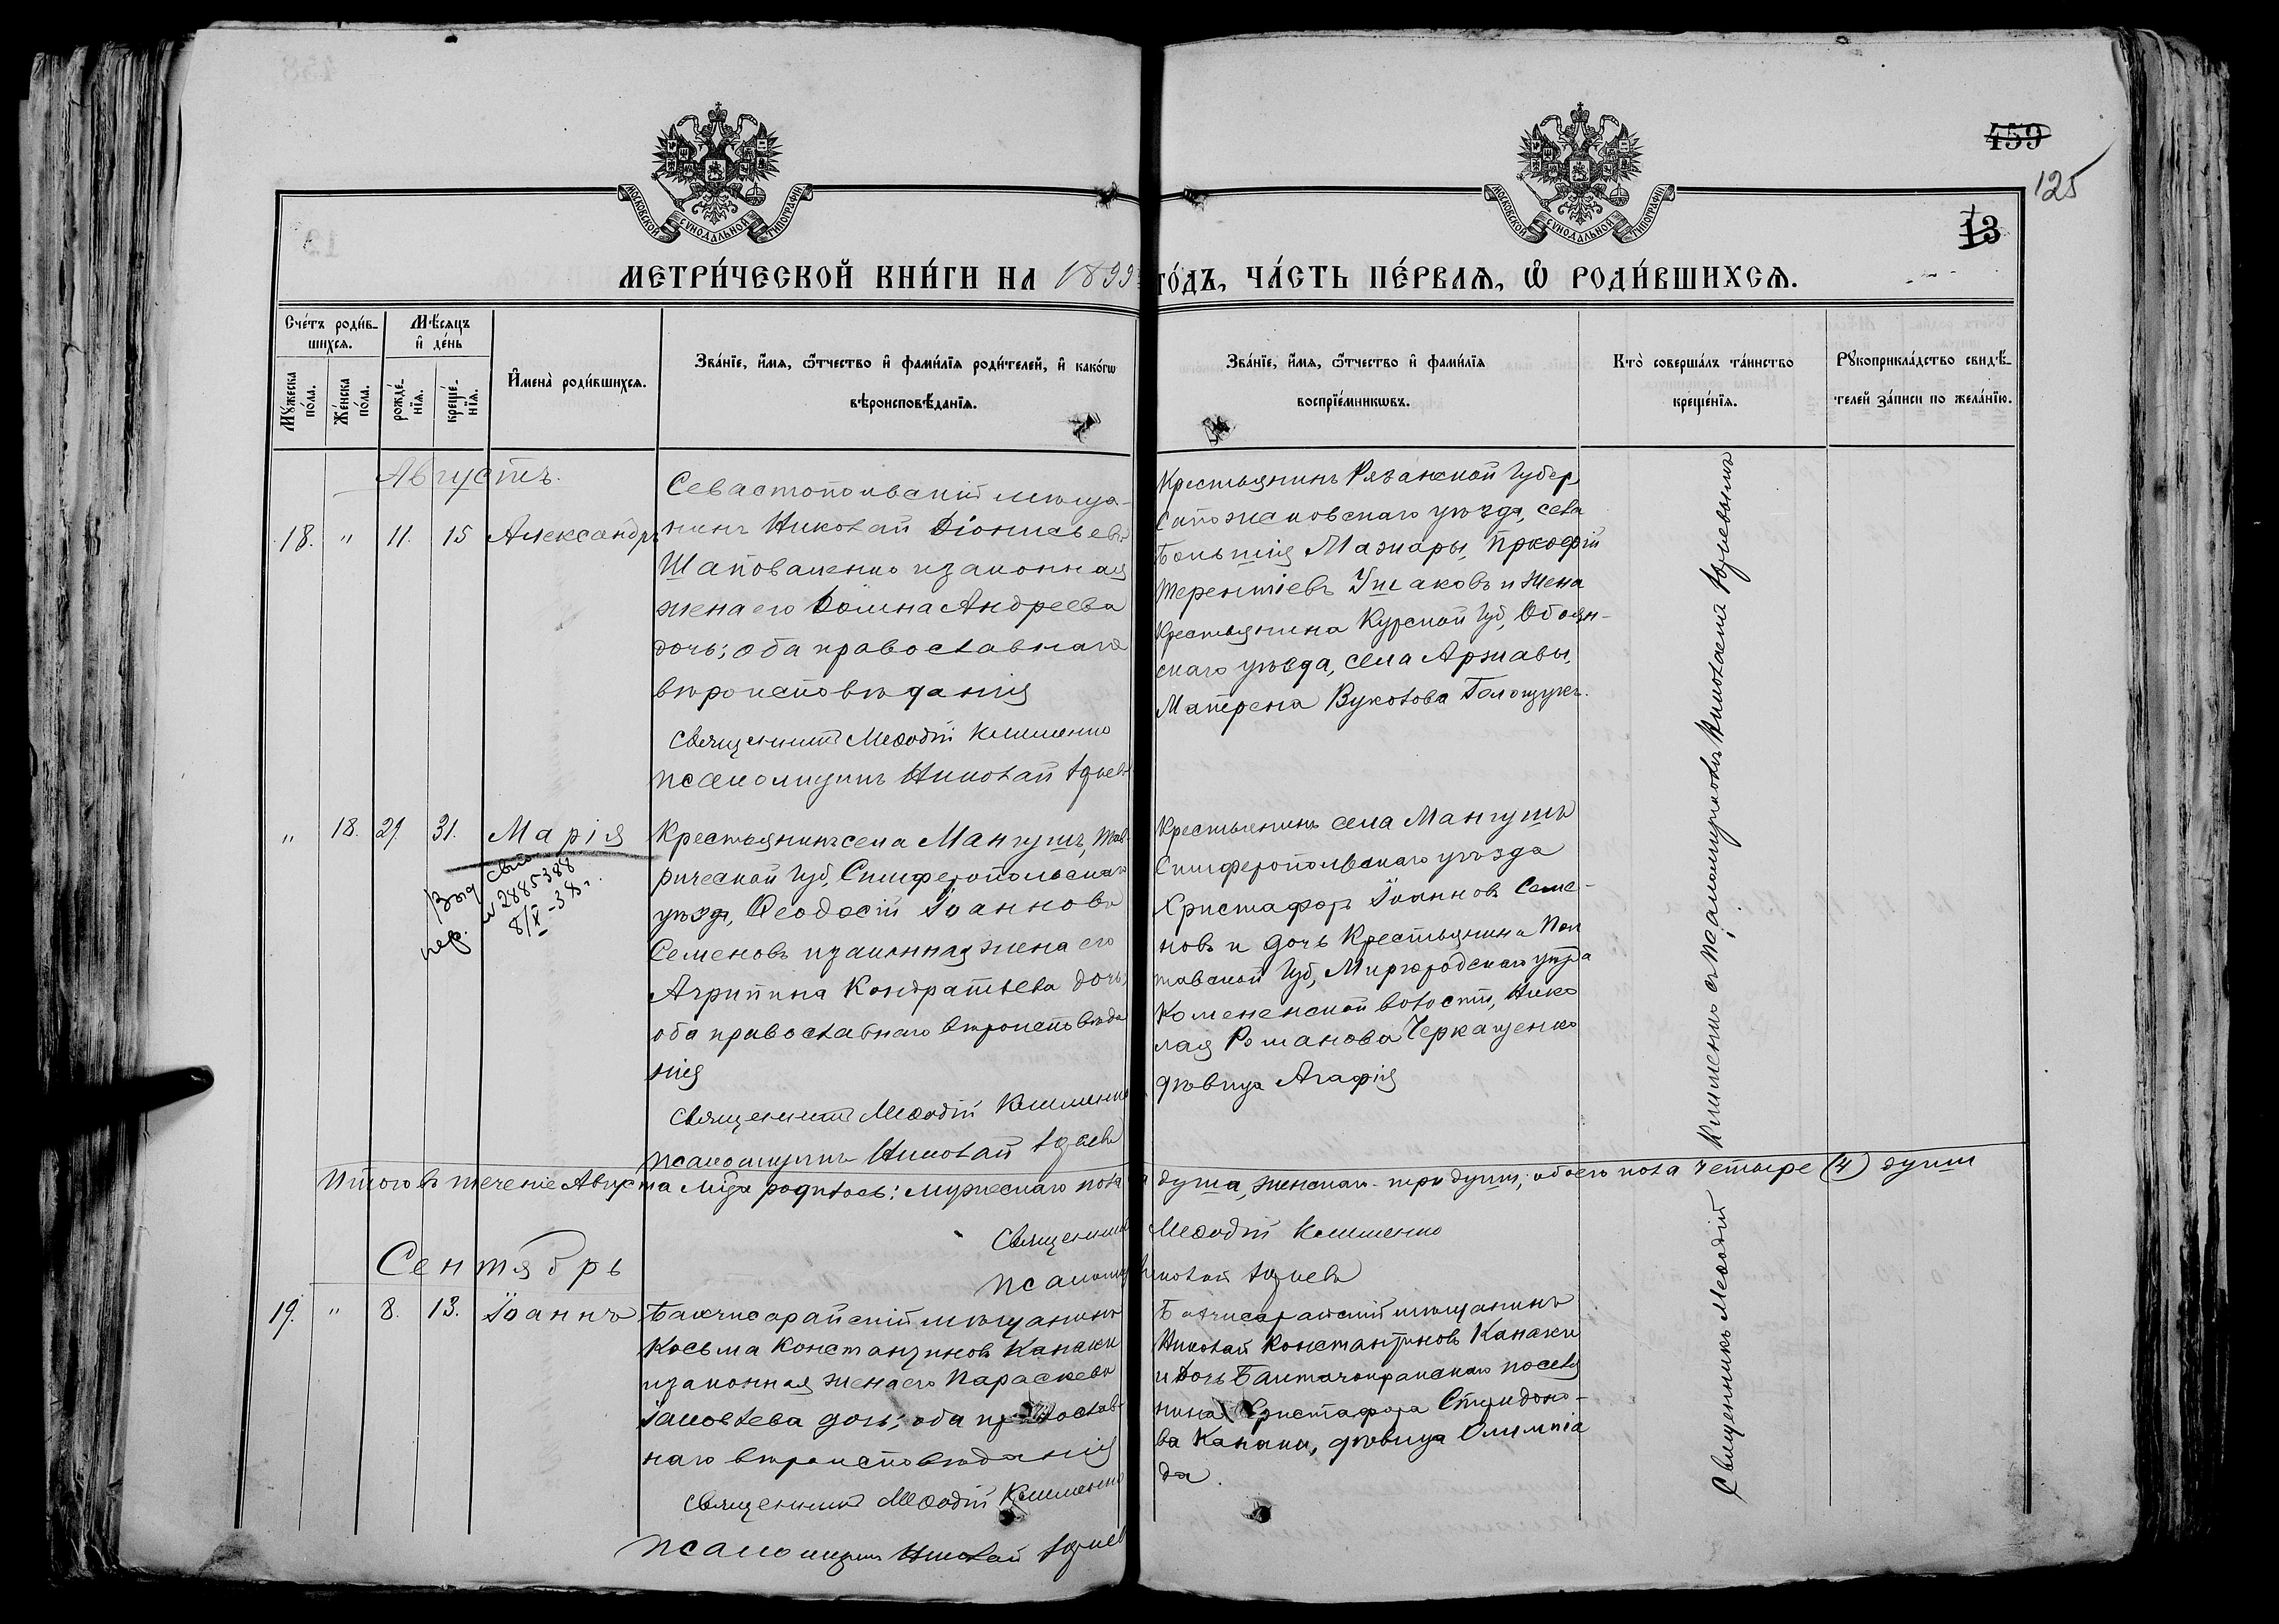 459
125
13
МОСКОВСКОЙ СѴНОДАЛЬНОЙ ТИПОГРАФІИ
МОСКОВСКОЙ СѴНОДАЛЬНОЙ ТИПОГРАФІИ
МЕТРИ́ЧЕСКОЙ КНИ́ГИ НА 1899 го́дъ, ЧА́СТЬ ПЕ́РВАЯ, Ѡ҆ РОДИ́ВШИХСЯ.
Сче́тъ роди́в-
шихся.
Мꙋ́жеска по́ла.
Же́нска по́ла.
Мѣ́сяцъ и҆ де́нь
рожде́-нїя.
креще́-нїя.
И҆мена̀ роди́вшихся.
Зва́нїе, и҆́мя, ѻ҆́тчество и҆ фами́лїя роди́телей, и҆ како́гѡ
вѣроисповѣ́данїя.
Зва́нїе, и҆́мя, ѻ҆́тчество и҆ фами́лїя
воспрїе́мникѡвъ.
Кто̀ соверша́лъ та́инство
креще́нїя.
Рꙋкоприкла́дство свидѣ́-
телей за́писи по жела́нїю.
Августъ.
18. " 11. 15 Александръ
Севастопольскій мѣща-
нинъ Николай Діонисьевъ
Шаповаленко и законная
жена его Домна Андреева
дочь; оба православнаго
вѣроисповѣданія
Священникъ Меѳодій Клименко
Псаломщикъ Николай
Крестьянинъ Рязанской Губер.
Сапожковскаго уѣзда, села
Большія Мажары, Пркофій
Терентіевъ Ушаковъ и жена
Крестьянина Курской Губ, Обоян-
скаго уѣзда, села Аржавы,
Матрена Вуколова
" 18. 29 31. Марія
Выд свид
№ 2885388
8/X-38 г.
Крестьянинъ села Мангушъ, Тав
рической Губ, Симферопольскаго
уѣзда, Ѳеодосій Іоанновъ
Семеновъ и законная жена его
Агрипина Кондратьева дочь,
оба православнаго вѣроисповѣда
нія
Священникъ Меѳодій Клименко
Псаломщикъ Николай
Крестьянинъ села Мангушъ
Симферопольскаго уѣзда
Христафоръ Іоанновъ Семе-
новъ и дочь Крестьянина Пол
тавской Губ, Миргородскаго уѣзда
волости, Нико
лая Романова Черкащенко
дѣвица Агафія
Итого въ теченіе Августа м-ца родилось: мужескаго пола душа, женскаго три души, обоего пола четыре (4) души
Священникъ Меѳодій Клименко
Псаломщ Николай
Сентябрь
19. " 8. 13. Іоаннъ
Бакчисарайскій мѣщанинъ
Косьма Константиновъ Канаки
и законная жена его Параскева
Іаковлева дочь; оба православ
наго вѣроисповѣданія
Священникъ Меѳодій Клименко
Псаломщикъ Николай
Бахчисарайскій мѣщанинъ
Николай Константиновъ Канаки
и дочь поселя
нина Христафора
ва Канаки, дѣвица Олимпіа
да.
Священникъ Меѳодій Клименко съ псаломщикомъ Николаемъ